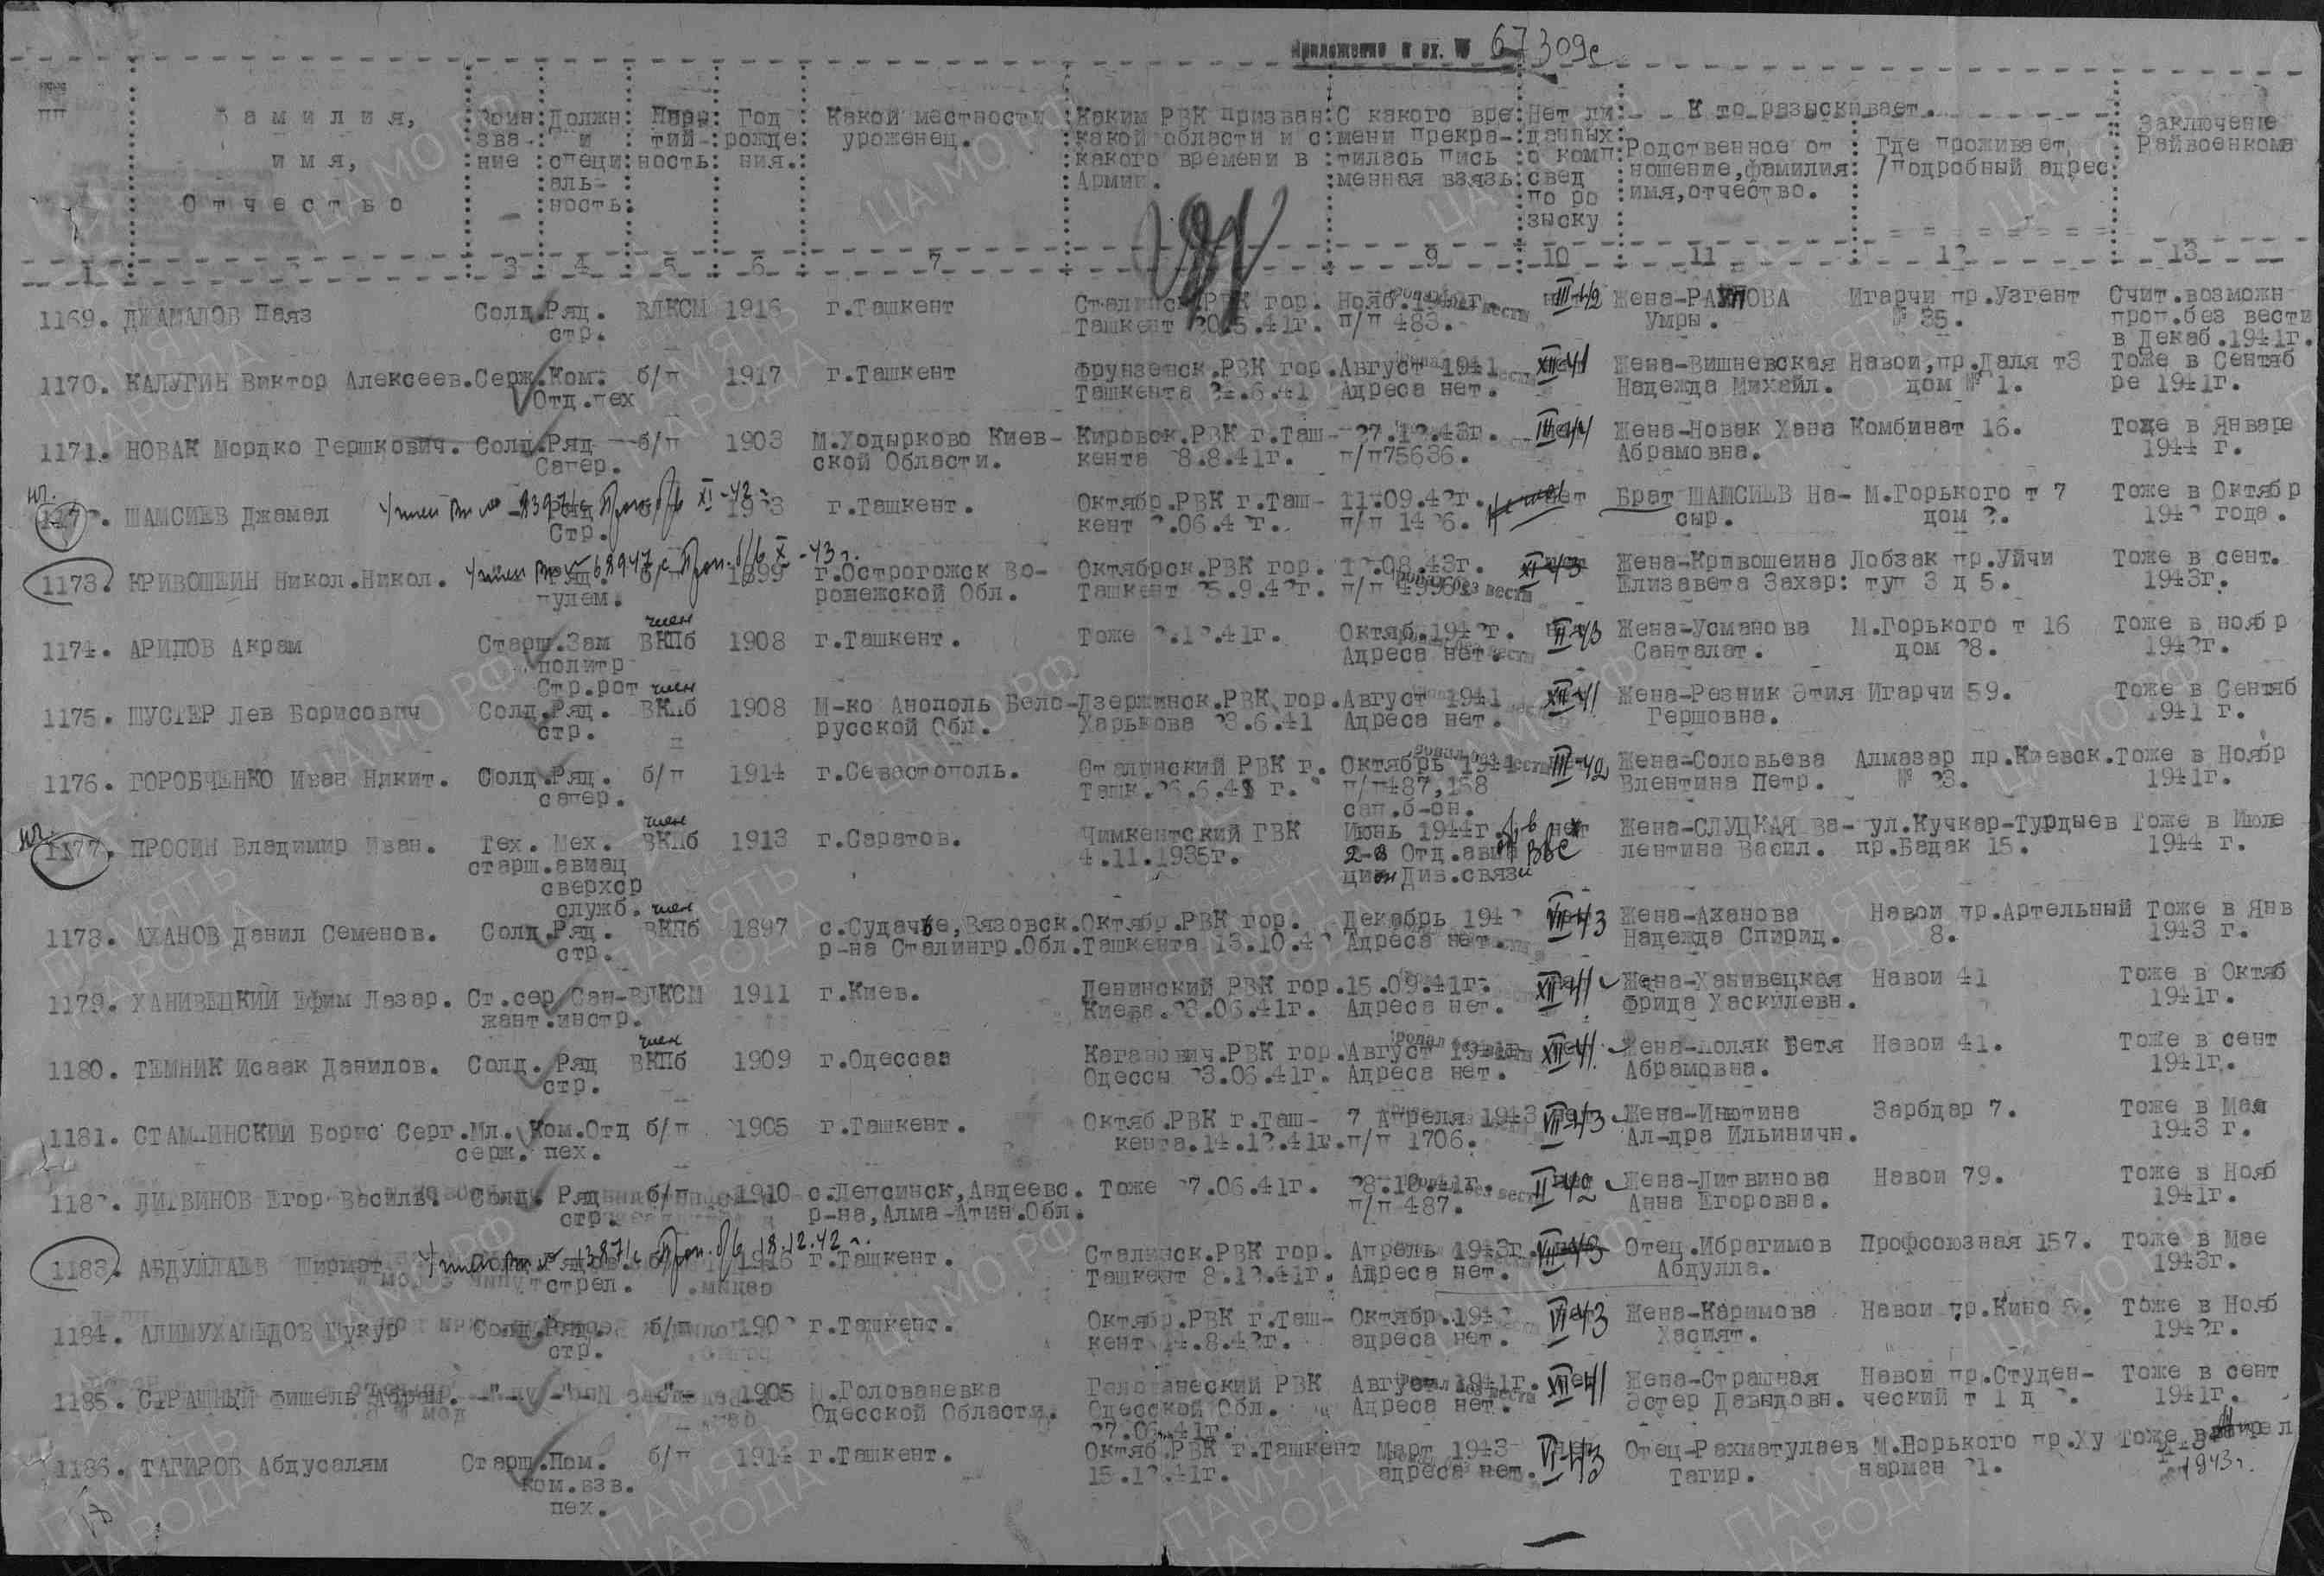 Приложение к вх. № 67309с
пп Фамилия, имя, Отчество Воин зва- ние Должн и специ аль- ность. Парт тий- ность Год рожде ния. Какой местности уроженец. Каким РВК призван какой области и с какого времени в Армии. С какого вре мени прекра- тилась пись менная взязь Нет ли данных о комп свед по ро зыску Кто разыскивает. Родственное от ношение, фамилия имя, отчество. Где проживает /подробный адрес Заключение Райвоенкома
1 3 4 5 6 7 9 10 11 12 13
1169. ДЖАМАЛОВ Паяз Солд. Ряд. ВЛКСМ 1916 г.Ташкент Сталинск.РВК гор. Нояб.1941г. III-42 Жена-РАИПОВА Игарчи пр.Узгент Счит.возможн
стр. Ташкент 20.5.41г. п/п 483. Умры. № 35. проп.без вести
в Декаб.1941г.
1170. КАЛУГИН Виктор Алексеев. Серж. Ком. б/п 1917 г.Ташкент Фрунзенск.РВК гор. Август 1941 XII-41 Жена-Вишневская Навои,пр.Даля т3 Тоже в Сентяб
Отд.пех Ташкента 24.6.41 Адреса нет. Надежда Михайл. дом № 1. ре 1941г.
1171. НОВАК Мордко Гершкович. Солд. Ряд б/п 1903 М.Ходырково Киев- Кировск.РВК г.Таш- 27.12.43г. III-44 Жена-Новак Хана Комбинат 16. Тоже в Январе
Сапер. ской Области. кента 28.8.41г. п/п75636. Абрамовна. 1944 г.
ШАМСИЕВ Джамал Проп. б/в XI-42 г.Ташкент. Октябр.РВК г.Таш- 11.09.42г. нет Брат ШАМСИЕВ На- М.Горького т 7 Тоже в Октябр
Стр. кент 2.06.42г. п/п 1426. сыр. дом 2. 1942 года.
1173. КРИВОШЕИН Никол.Никол. 68947с Проп. б/в X-43г. 1899 г.Острогожск Во- Октябрск.РВК гор. 12.08.43г. XI-43 Жена-Кривошеина Лобзак пр.Уйчи Тоже в сент.
пулем. ронежской Обл. Ташкент 25.9.42г. п/п Елизавета Захар: туп 3 д 5. 1943г.
1174. АРИПОВ Акрам Старш. Зам член ВКПб 1908 г.Ташкент. Тоже 2.12.41г. Октяб.1942г. II-43 Жена-Усманова М.Горького т 16 Тоже в ноябр
политр Адреса нет. Санталат. дом 28. 1942г.
Стр.рот
1175. ШУСТЕР Лев Борисович Солд. Ряд. член ВКПб 1908 М-ко Анополь Бело- Дзержинск.РВК гор. Август 1941 XII-41 Жена-Резник Этия Игарчи 59. Тоже в Сентяб
стр. русской Обл. Харькова 23.6.41 Адреса нет. Гершовна. 1941 г.
1176. ГОРОБЧЕНКО Иван Никит. Солд. Ряд. б/п 1914 г.Севастополь. Сталинский РВК г. Октябрь 1941 III-42 Жена-Соловьева Алмазар пр.Киевск. Тоже в Ноябр
сапер. Ташк.26.6.41 г. п/п487,158 Влентина Петр. № 23. 1941г.
сап.б-он.
1177. ПРОСИН Владимир Иван. Тех. Мех. член ВКПб 1913 г.Саратов. Чимкентский ГВК Июнь 1944г. б/в нет Жена-СЛУЦКАЯ Ва- ул.Кучкар-Турдыев Тоже в Июле
старш.авиац 4.11.1935г. 2-й Отд.авиа ВВС лентина Васил. пр.Бадак 15. 1944 г.
сверхср цион Див.связи
служб.
1178. АХАНОВ Данил Семенов. Солд. Ряд. член ВКПб 1897 с.Судачье,Вязовск. Октябр.РВК гор. Декабрь 1942 VII-43 Жена-Аханова Навои пр.Артельный Тоже в Янв
стр. р-на Сталингр.Обл. Ташкента 13.10.42 Адреса нет. Надежда Спирид. 8. 1943 г.
1179. ХАНИВЕЦКИЙ Ефим Лазар. Ст.сер Сан- ВЛКСМ 1911 г.Киев. Ленинский РВК гор. 15.09.41г. XII-41 Жена-Ханивецкая Навои 41 Тоже в Октяб
жант.инстр. Киева.23.06.41г. Адреса нет. Фрида Хаскилевн. 1941г.
1180. ТЕМНИК Исаак Данилов. Солд. Ряд член ВКПб 1909 г.Одессаа Каганович.РВК гор. Август 1941г XII-41 Жена-Поляк Бетя Навои 41. Тоже в сент
стр. Одессы 23.06.41г. Адреса нет. Абрамовна. 1941г.
1181. СТАМБИНСКИЙ Борис Серг. Мл. Ком.Отд б/п 1905 г.Ташкент. Октяб.РВК г.Таш- 7 Апреля 1943 VII-43 Жена-Инютина Зарбдар 7. Тоже в Мая
серж. пех. кента.14.12.41г. п/п 1706. Ал-дра Ильиничн. 1943 г.
1182. ЛИТВИНОВ Егор Василь. Солд. Ряд б/п 1910 с.Лепсинск,Авдеевс. Тоже 27.06.41г. 28.10.41г. II-42 Жена-Литвинова Навои 79. Тоже в Нояб
стр. р-на,Алма-Атин.Обл. п/п 487. Анна Егоровна. 1941г.
1183. АБДУЛЛАЕВ Ширмат Проп. б/в 18.12.42г. 1916 г.Ташкент. Сталинск.РВК гор. Апрель 1943г. VIII-43 Отец.Ибрагимов Профсоюзная 157. Тоже в Мае
стрел. Ташкент 8.12.41г. Адреса нет. Абдулла. 1943г.
1184. АЛИМУХАМЕДОВ Шукур Солд. Ряд. б/п 1902 г.Ташкент. Октябр.РВК г.Таш- Октябр.1942 VI-43 Жена-Каримова Навои пр.Кино Тоже в Нояб
стр. кент 14.8.42г. адреса нет. Хасият. 1942г.
1185. СТРАШНЫЙ Фишель Абрам. -"- -"- 1905 М.Голованевка Голованеский РВК Август 1941г. XII-41 Жена-Страшная Навои пр.Студен- Тоже в сент
Одесской Области. Одесской Обл. Адреса нет. Эстер Давыдовн. ческий т 1 д 2. 1941г.
27.06.41г.
1186. ТАГИРОВ Абдусалям Старш. Пом. б/п 1914 г.Ташкент. Октяб.РВК г.Ташкент Март 1943 VI-43 Отец-Рахматулаев М.Горького пр.Ху Тоже в Апрел
ком.взв. 15.12.41г. адреса нет. Тагир. нармен 21. 1943г.
пех.